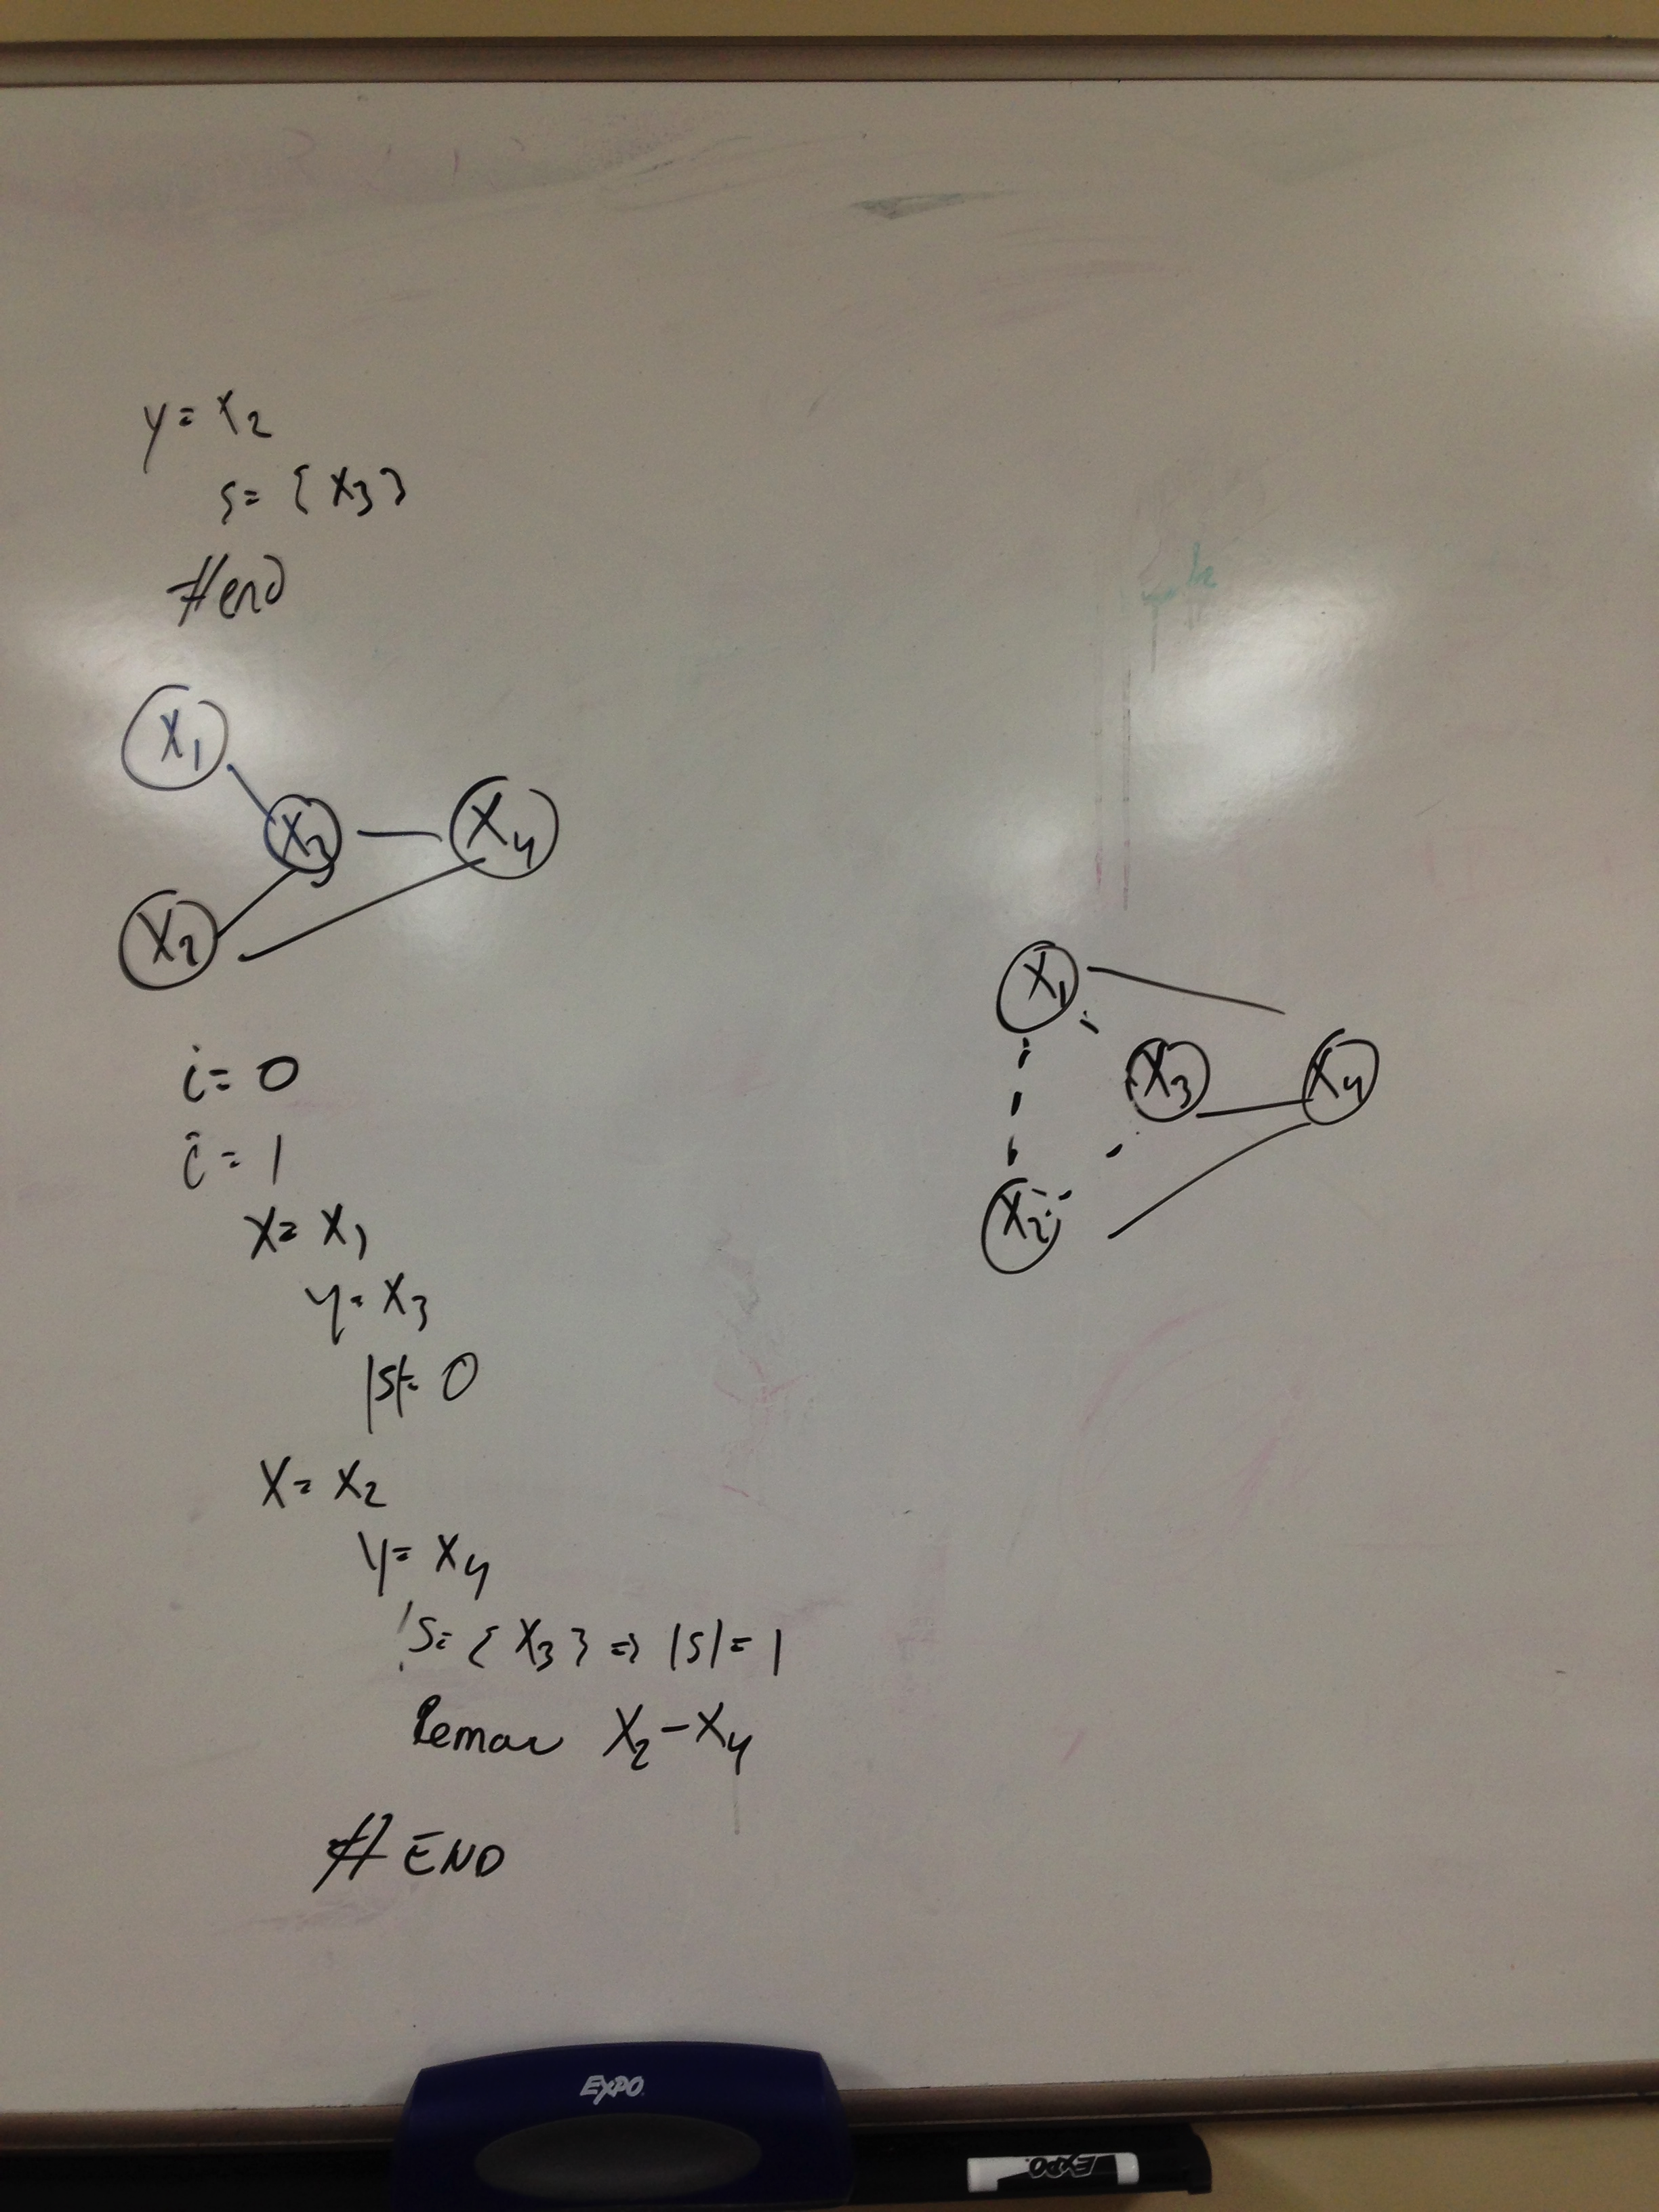 y = x2
s = { x3 }
#end
X1
X3
X4
X2
i = 0
i = 1
X = X1
y = X3
|S| = 0
X = X2
y = X4
S = { X3 } => |S| = 1
Remove X2 - X4
# END
X1
X3
X4
X2
EXPO
EXPO